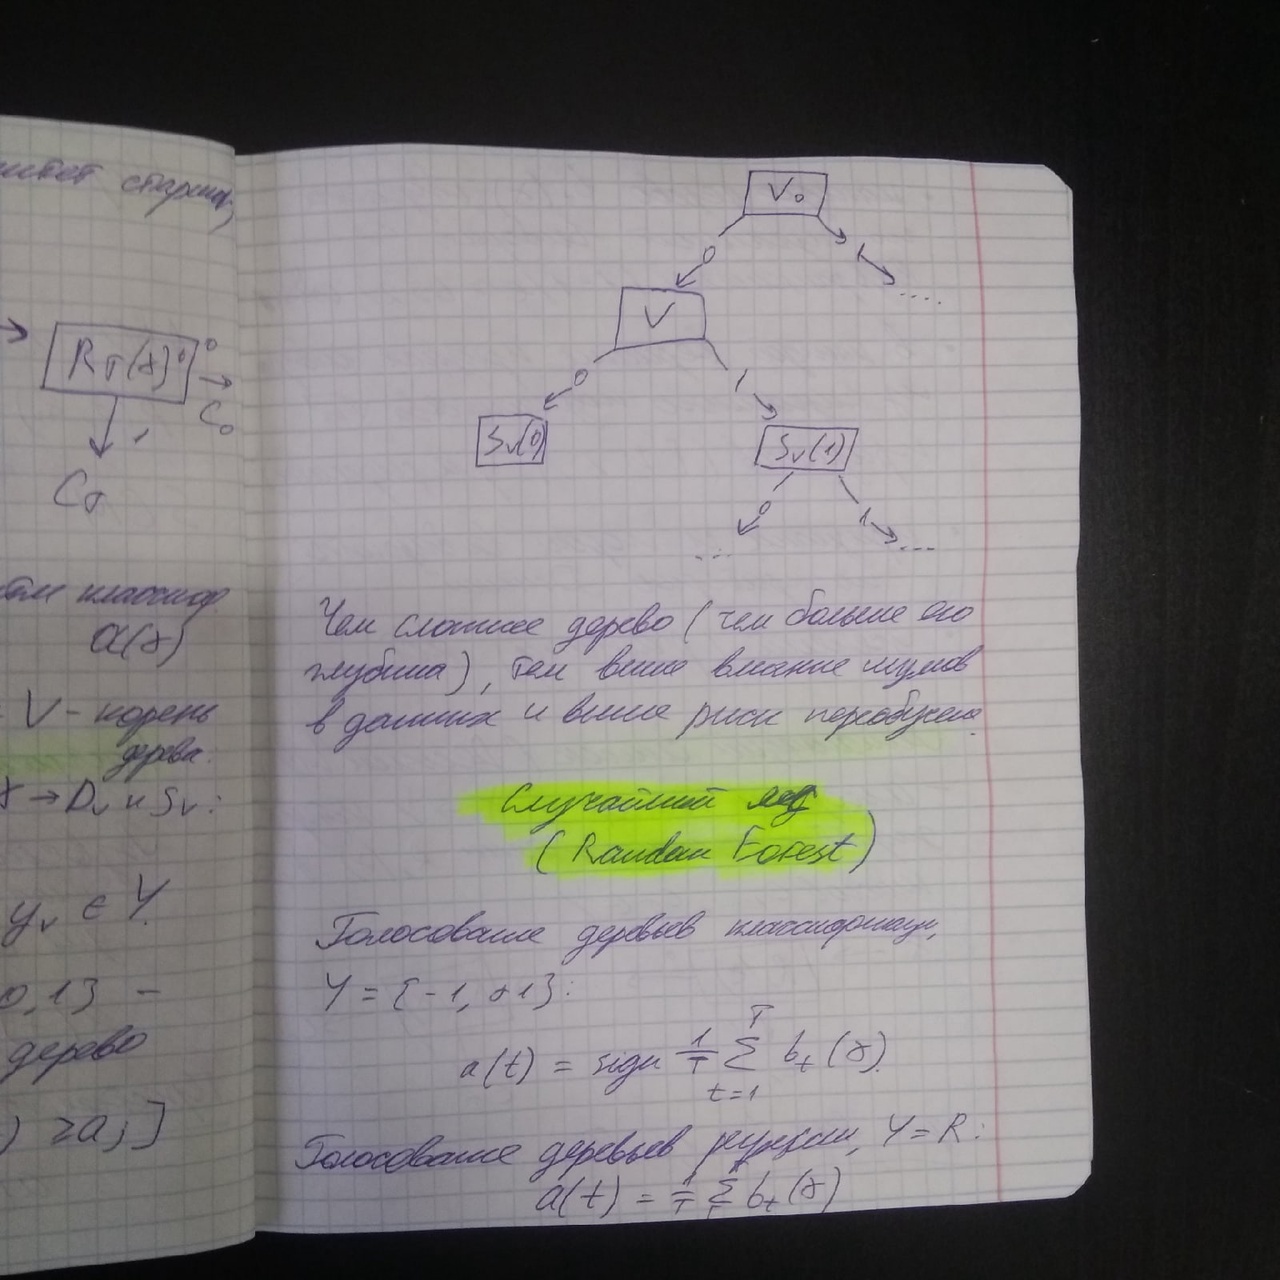 стархин,
Rт(x)
0
C₀
1
Cт
классиф
a(x)
V - корень
дерева.
x → Dv и Sv:
yv ∈ Y.
0,1} -
дерево
) ≥ aj]
V₀
0
1
....
V
0
1
Sv(0)
Sv(1)
0
1
...
...
Чем сложнее дерево (чем больше его
глубина), тем выше влияние шумов
в данных и выше риск переобучения.
Случайный лес
(Random Forest)
Голосование деревьев классификации,
Y = {-1, +1}:
a(t) = sign 1/T Σ_{t=1}^{T} b_t(x).
Голосование деревьев регрессии, Y = R:
a(t) = 1/T Σ b_t(x)